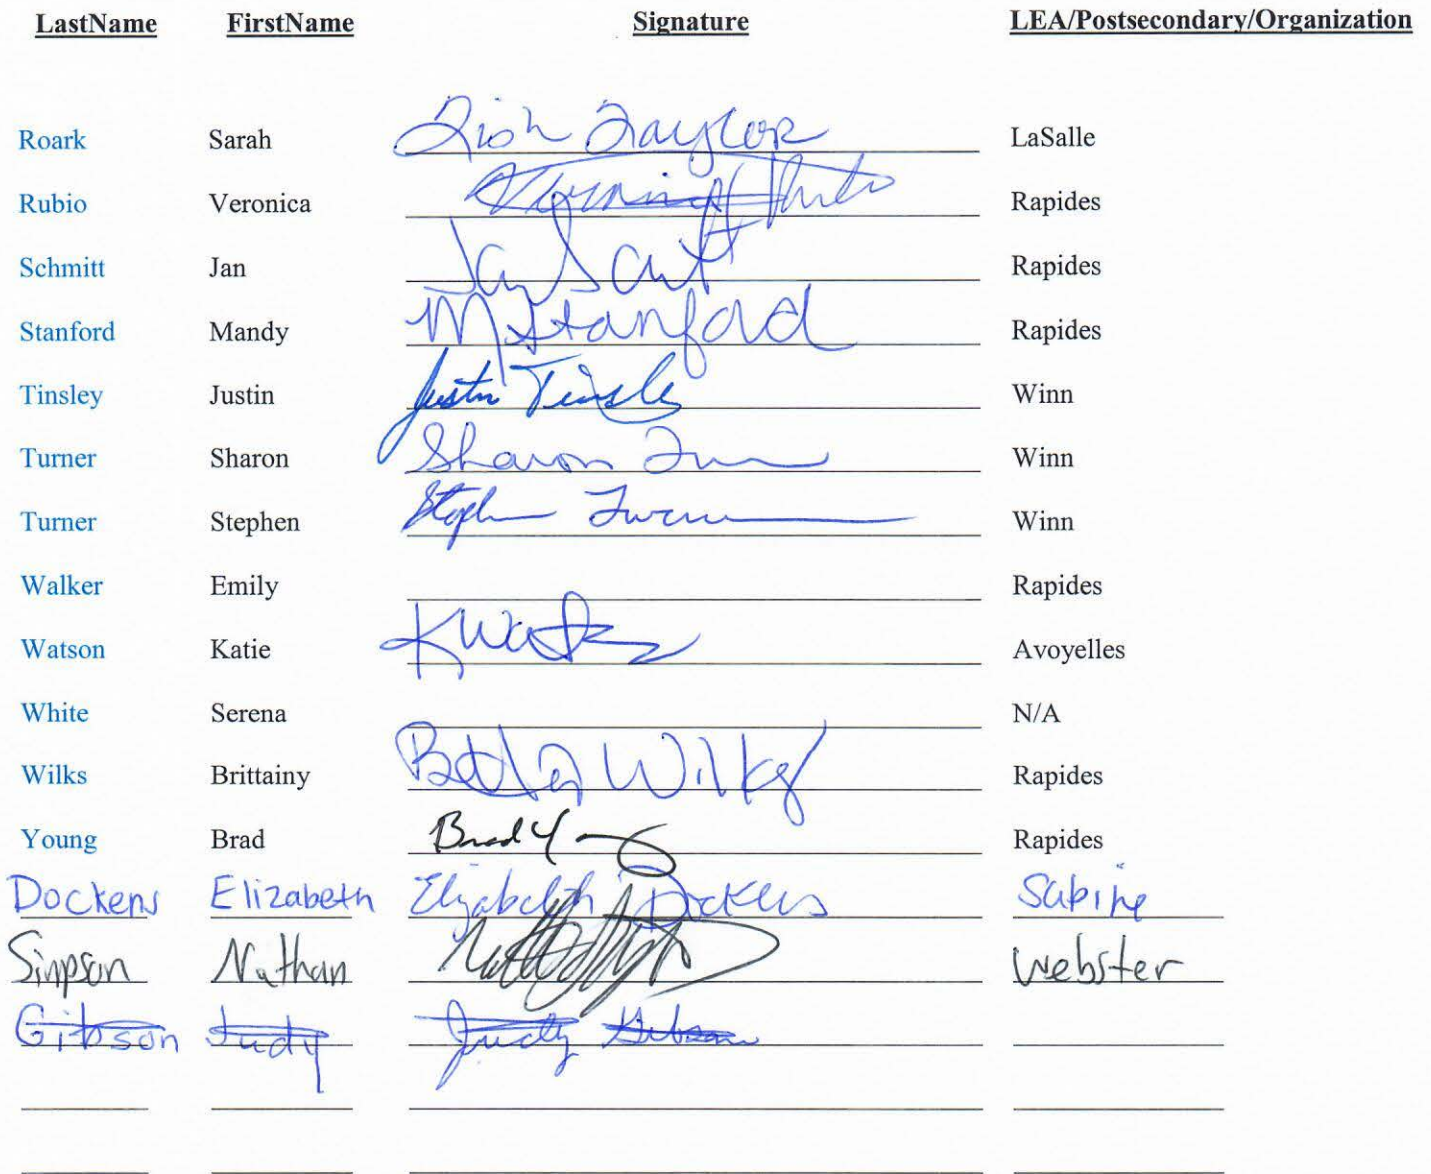 LastName FirstName Signature LEA/Postsecondary/Organization
Roark Sarah Trish Taylor LaSalle
Rubio Veronica Rapides
Schmitt Jan Jan Rapides
Stanford Mandy M Stanford Rapides
Tinsley Justin Justin Tinsley Winn
Turner Sharon Sharon Winn
Turner Stephen Stephen Turner Winn
Walker Emily Rapides
Watson Katie K Avoyelles
White Serena N/A
Wilks Brittainy Wilks Rapides
Young Brad Brad Rapides
Dockens Elizabeth Elizabeth Dockens Sabine
Simpson Nathan Webster
Gibson Judy Judy Gibson